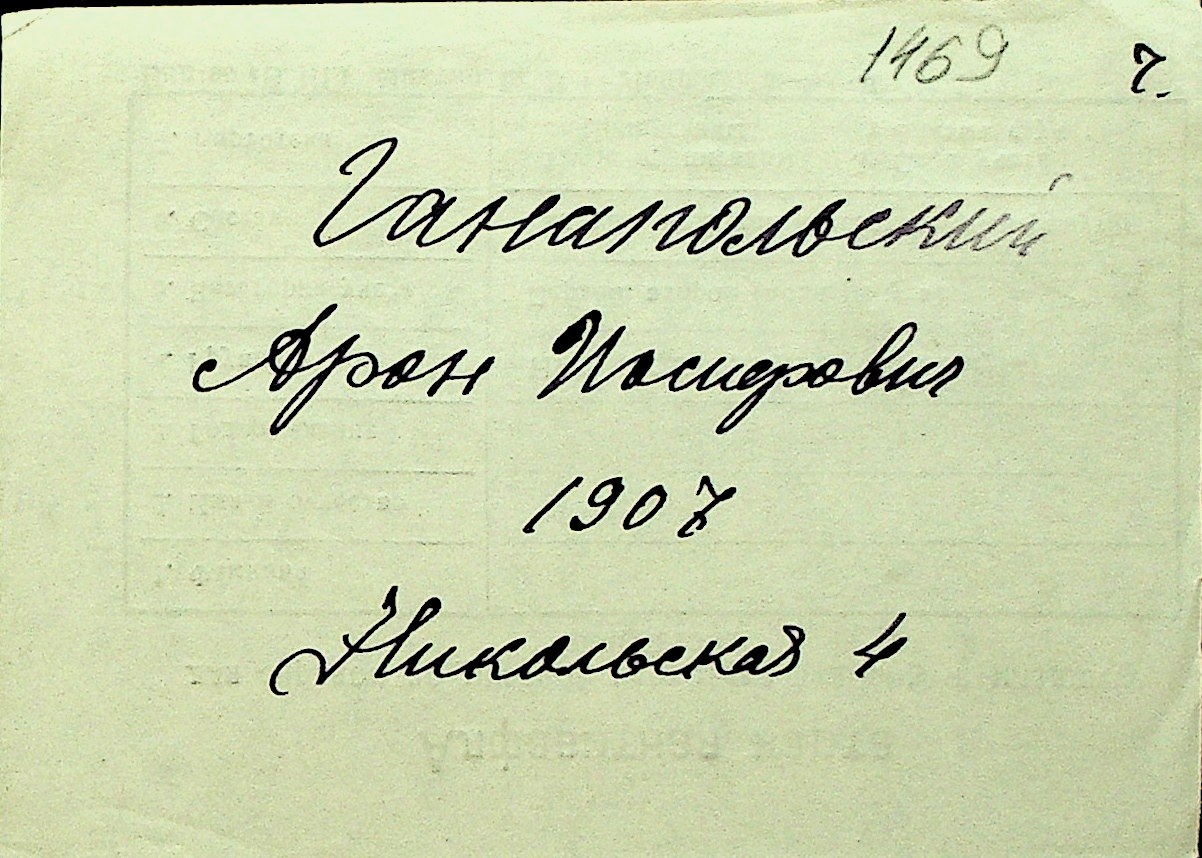 1469 7.
Ганапольский
Арон Иосифович
1907
Никольская 4